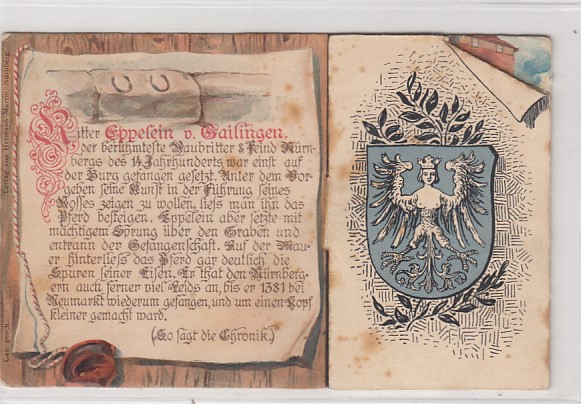 Ritter Eppelein v. Gailingen.
der berühmteste Raubritter & Feind Nürn-
bergs des 14. Jahrhunderts, war einst auf
der Burg gefangen gesetzt. Unter dem Vor-
geben seine Kunst in der Führung seines
Rosses zeigen zu wollen, liess man ihn das
Pferd besteigen. Eppelein aber setzte mit
mächtigem Sprung über den Graben und
entrann der Gefangenschaft. Auf der Mau-
er hinterliess das Pferd gar deutlich die
Spuren seiner Eisen. Er that den Nürnberg-
ern auch ferner viel Leids an, bis er 1381 bei
Neumarkt wiederum gefangen, und um einen Kopf
kleiner gemacht ward.
(So sagt die Chronik.)
Verlag von Hermann Martin, Nürnberg.
Ges. gesch.